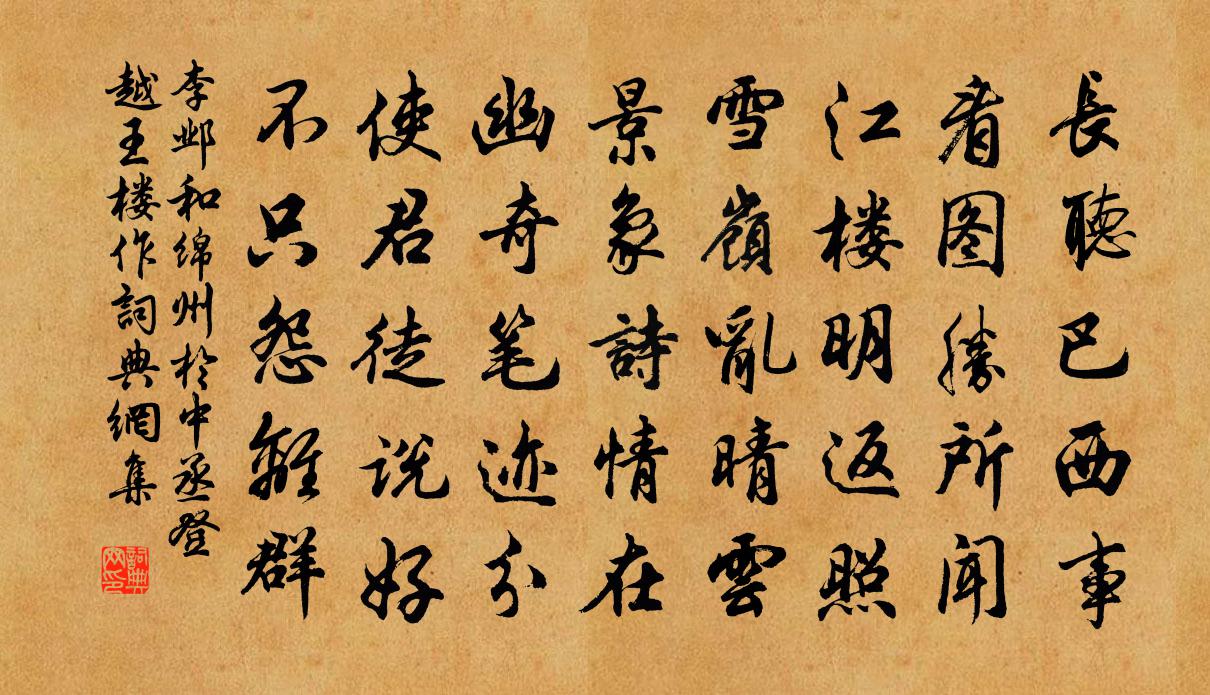 長聽巴西事
看图勝所聞
江楼明返照
雪嶺亂晴雲
景象詩情在
幽奇笔迹分
使君徒说好
不只怨離群
李邺和绵州於中丞登
越王楼作詞典網集
詞典网印